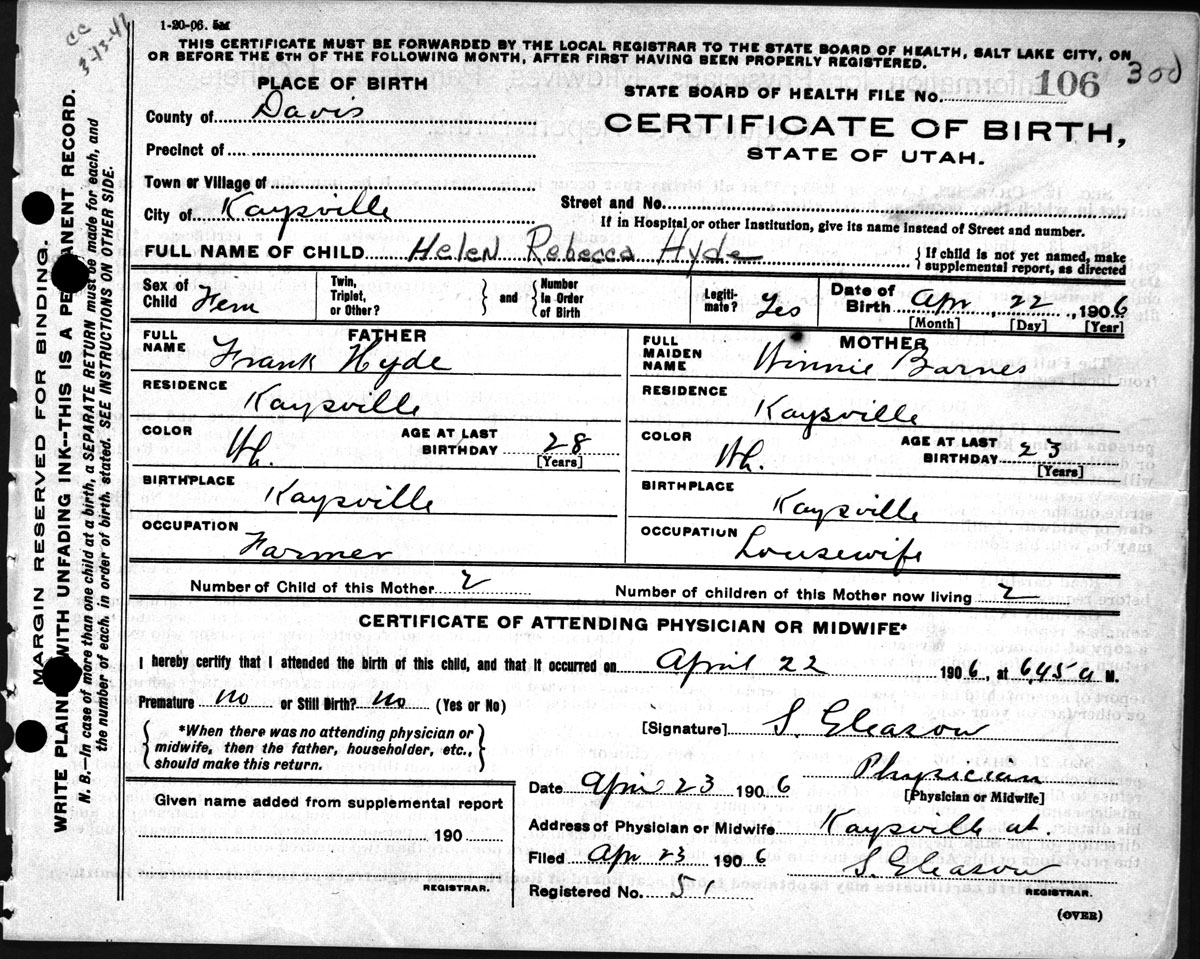 CC
3-13-42
1-20-06. 5M
THIS CERTIFICATE MUST BE FORWARDED BY THE LOCAL REGISTRAR TO THE STATE BOARD OF HEALTH, SALT LAKE CITY, ON
OR BEFORE THE 5TH OF THE FOLLOWING MONTH, AFTER FIRST HAVING BEEN PROPERLY REGISTERED.
300
PLACE OF BIRTH
STATE BOARD OF HEALTH FILE No. 106
County of Davis
CERTIFICATE OF BIRTH,
STATE OF UTAH.
Precinct of
Town or Village of
City of Kaysville
Street and No.
If in Hospital or other Institution, give its name Instead of Street and number.
FULL NAME OF CHILD Helen Rebecca Hyde { If child is not yet named, make supplemental report, as directed
Sex of Child Fem Twin, Triplet, or Other? } and { Number In Order of Birth Legiti-mate? Yes Date of Birth Apr, 22, 1906
[Month] [Day] [Year]
FATHER
FULL NAME Frank Hyde
RESIDENCE
Kaysville
COLOR Wh. AGE AT LAST BIRTHDAY 28
[Years]
BIRTHPLACE
Kaysville
OCCUPATION
Farmer
MOTHER
FULL MAIDEN NAME Winnie Barnes
RESIDENCE
Kaysville
COLOR Wh. AGE AT LAST BIRTHDAY 23
[Years]
BIRTHPLACE
Kaysville
OCCUPATION
Housewife
Number of Child of this Mother 2 Number of children of this Mother now living 2
CERTIFICATE OF ATTENDING PHYSICIAN OR MIDWIFE*
I hereby certify that I attended the birth of this child, and that it occurred on April 22 1906, at 6,45 a M.
Premature no or Still Birth? no (Yes or No)
{ *When there was no attending physician or
midwife, then the father, householder, etc.,
should make this return. }
[Signature] S. Gleason
Physician
[Physician or Midwife]
Date April 23 1906
Given name added from supplemental report
190
REGISTRAR.
Address of Physician or Midwife Kaysville ut.
Filed Apr 23 1906 S. Gleason
REGISTRAR.
Registered No. 51
(OVER)
MARGIN RESERVED FOR BINDING.
WRITE PLAIN WITH UNFADING INK--THIS IS A PE ANENT RECORD.
N. B.--In case of more than one child at a birth, a SEPARATE RETURN must be made for each, and
the number of each, in order of birth, stated. SEE INSTRUCTIONS ON OTHER SIDE.